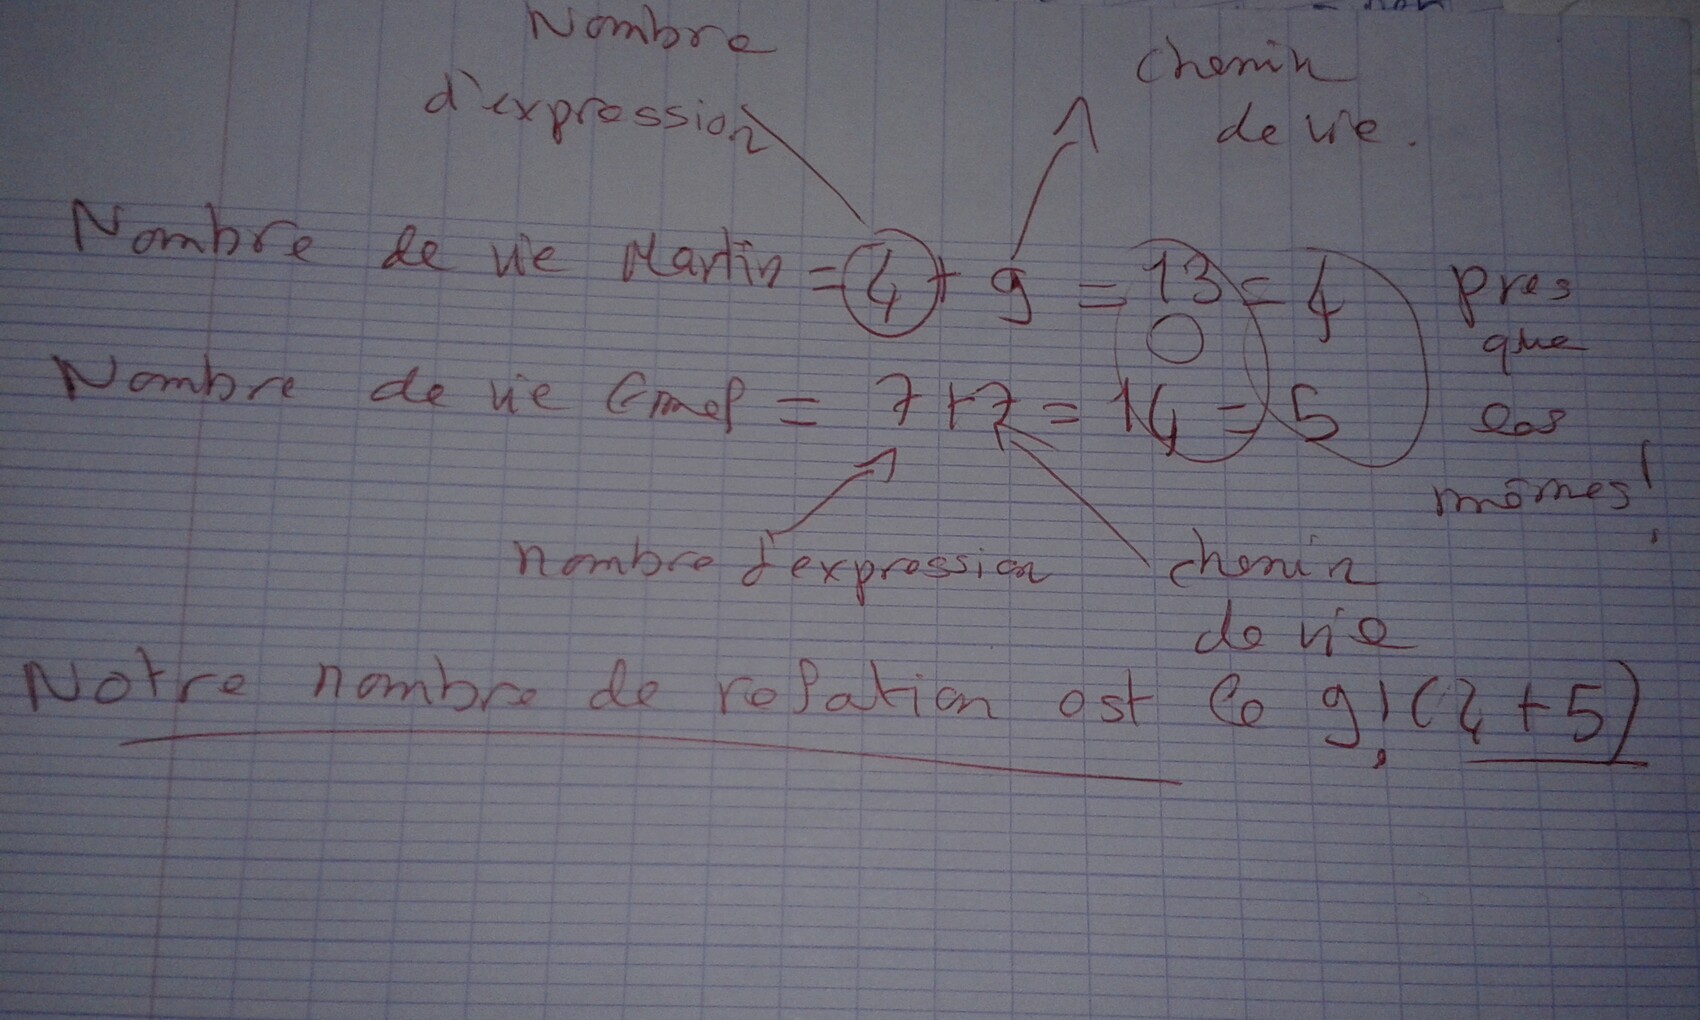 Nombre
d'expression
chemin
de vie.
Nombre de vie Martin = 4 + 9 = 13 = 4
Nombre de vie = 7 + 7 = 14 = 5
pres
que
les
mêmes!
nombre d'expression
chemin
de vie
Notre nombre de relation est le 9! (4 + 5)